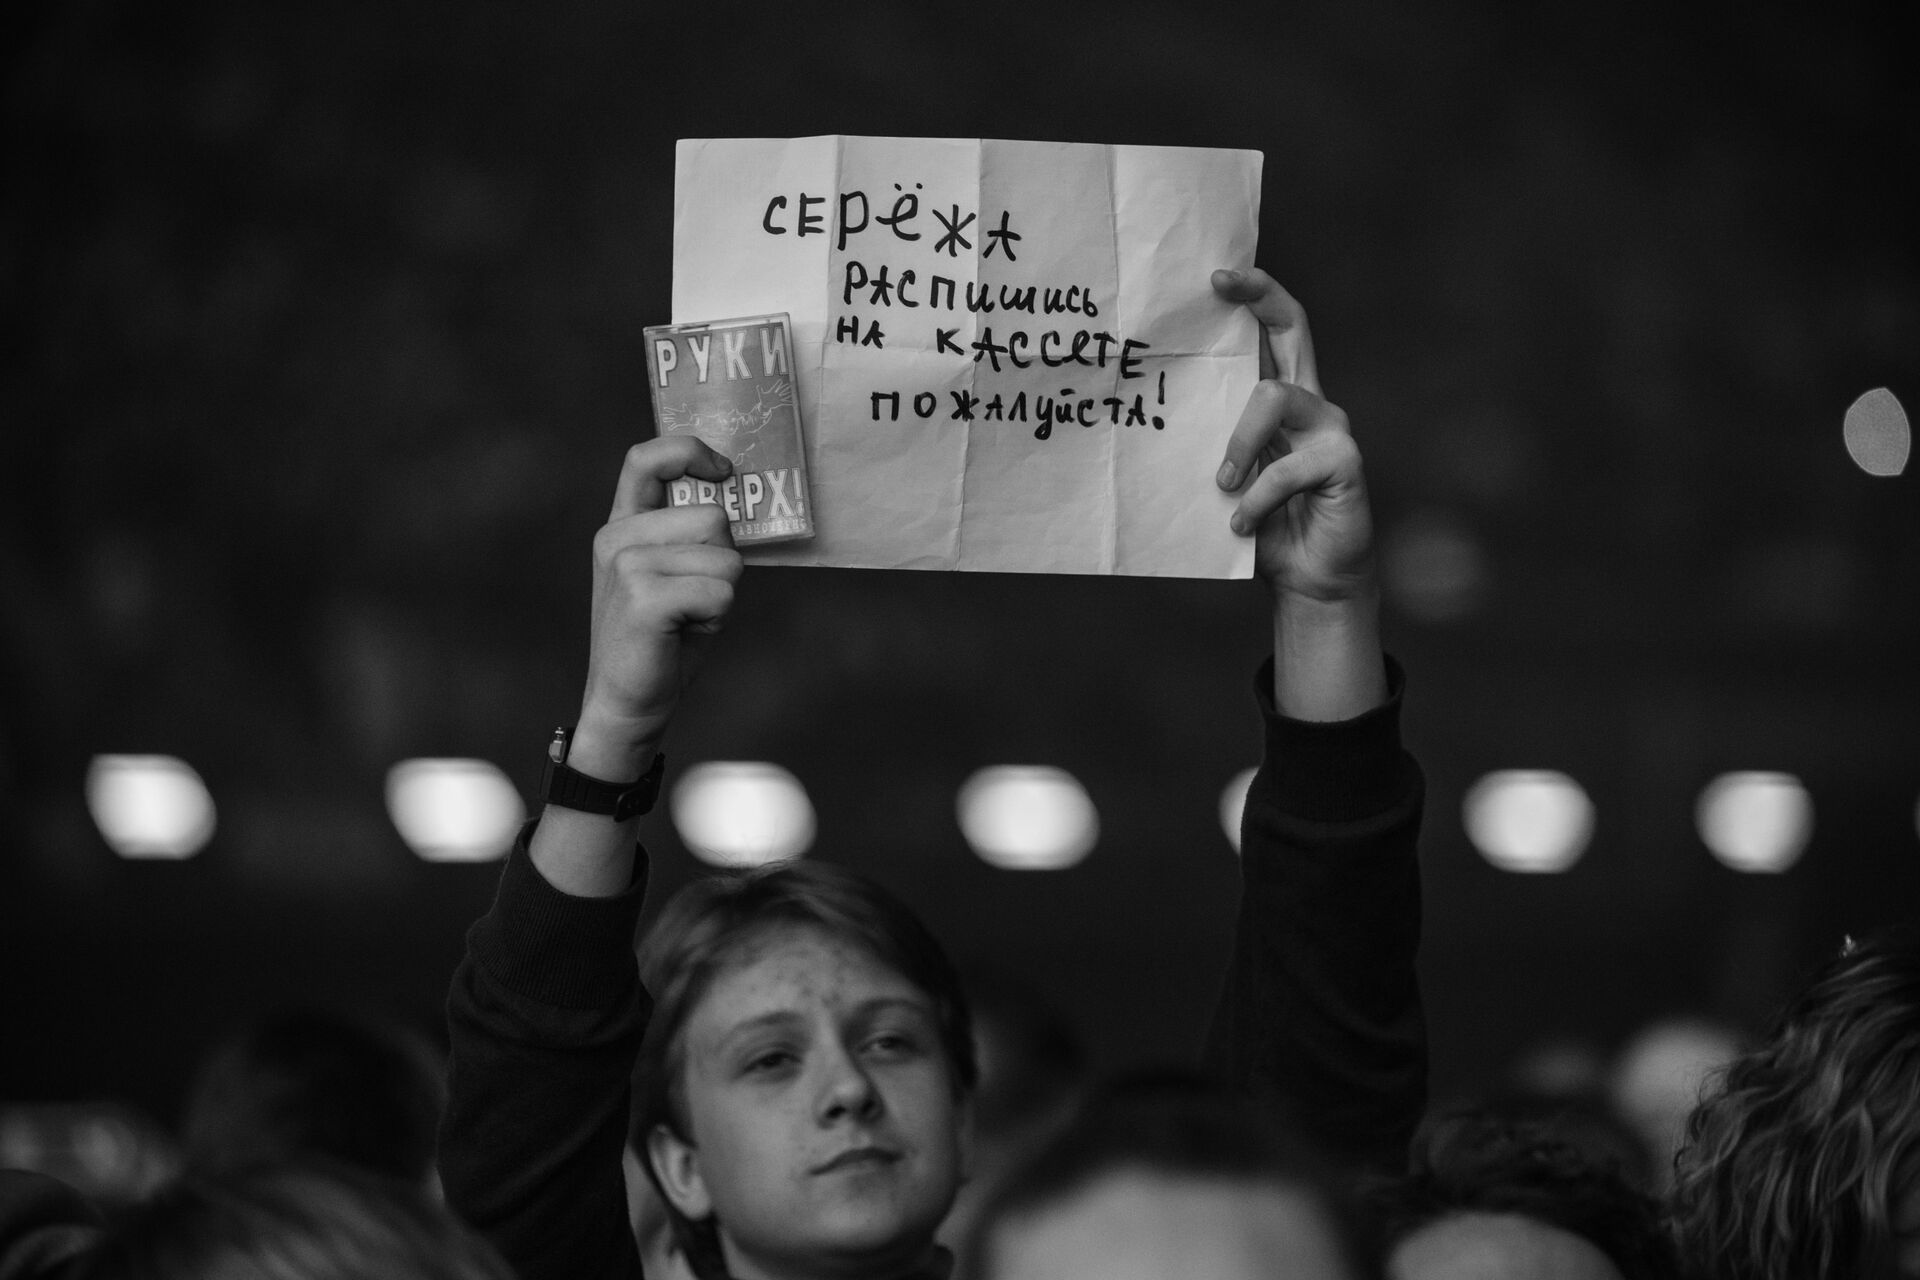 СЕРЁЖА
РАСПИШИСЬ
НА КАССЕТЕ
ПОЖАЛУЙСТА!
РУКИ
ВВЕРХ!